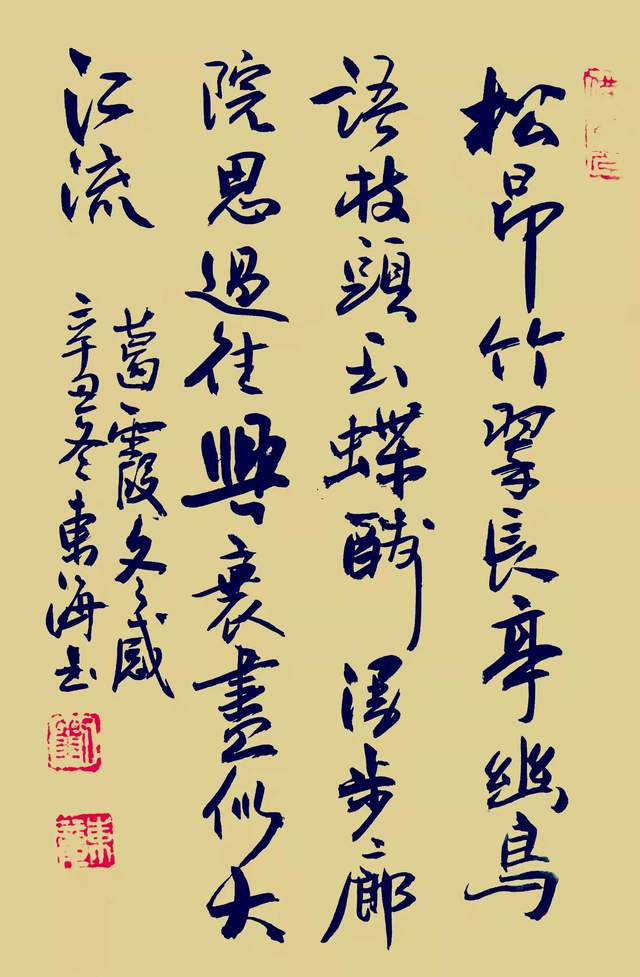 松昂竹翠長亭幽鳥
語枝頭玉蝶酬漫步廊
院思過往興衰盡似大
江流
葛霞感
辛丑冬東海書